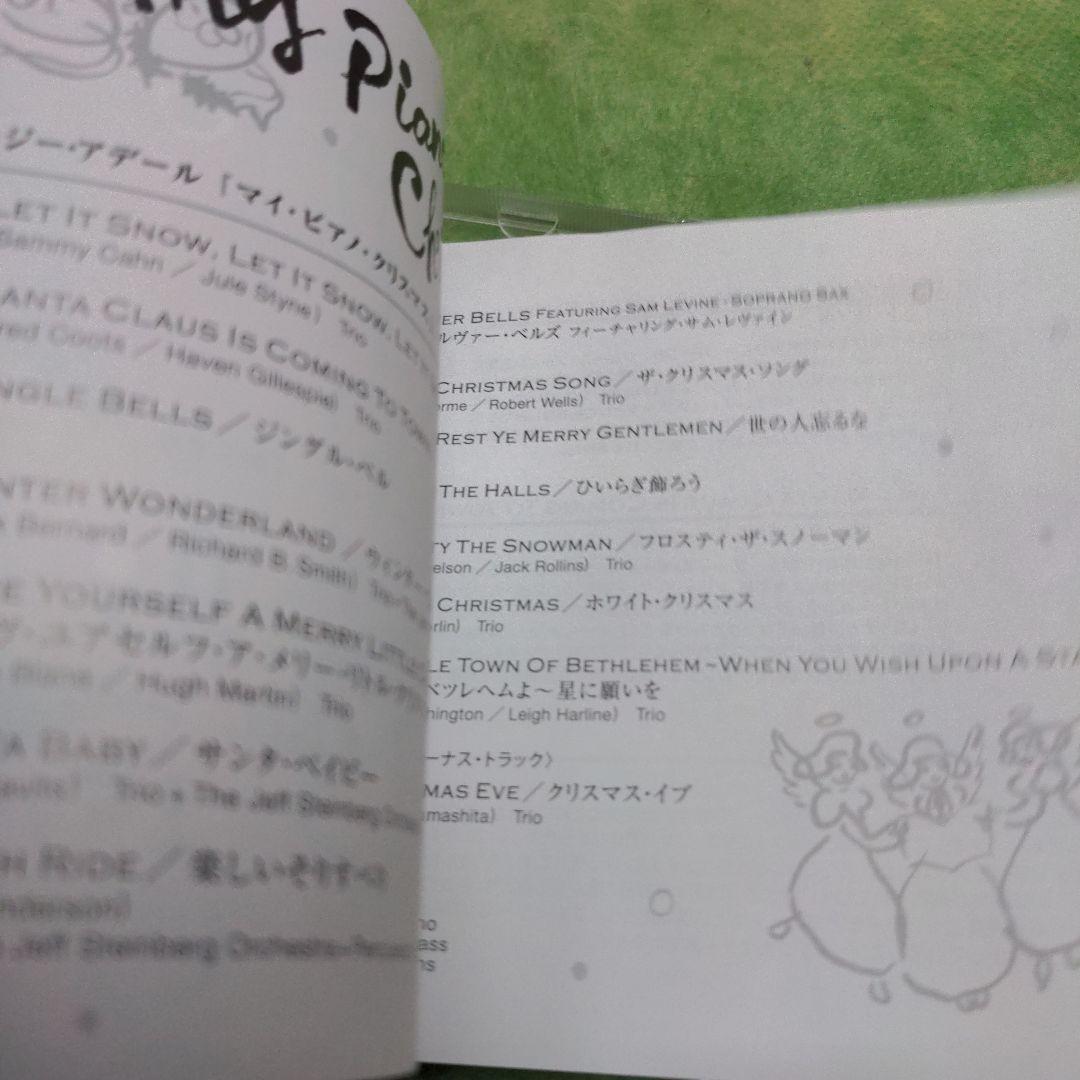 My Pian
Ch
ジー・アデール「マイ・ピアノ・クリスマス
LET IT SNOW, LET IT SNOW, LET
Sammy Cahn／Jule Styne) Trio
ANTA CLAUS IS COMING TO TOWN
red Coots／Haven Gillespie) Trio
NGLE BELLS／ジングル・ベル
NTER WONDERLAND／ウィンター
Bernard／Richard B. Smith) Trio
E YOURSELF A MERRY LITTLE
ヴ・ユアセルフ・ア・メリー・リトル・クリ
Blane／Hugh Martin) Trio
A BABY／サンタ・ベイビー
Trio × The Jeff Steinberg Orches
H RIDE／楽しいそりすべり
nderson)
Jeff Steinberg Orchestra
ER BELLS FEATURING SAM LEVINE・SOPRANO SAX
ルヴァー・ベルズ フィーチャリング・サム・レヴァイン
CHRISTMAS SONG／ザ・クリスマス・ソング
orme／Robert Wells) Trio
REST YE MERRY GENTLEMEN／世の人忘るな
THE HALLS／ひいらぎ飾ろう
TY THE SNOWMAN／フロスティ・ザ・スノーマン
elson／Jack Rollins) Trio
CHRISTMAS／ホワイト・クリスマス
rlin) Trio
LE TOWN OF BETHLEHEM~WHEN YOU WISH UPON A STA
ベツレヘムよ～星に願いを
hington／Leigh Harline) Trio
ーナス・トラック〉
MAS EVE／クリスマス・イブ
mashita) Trio
no
ass
ns